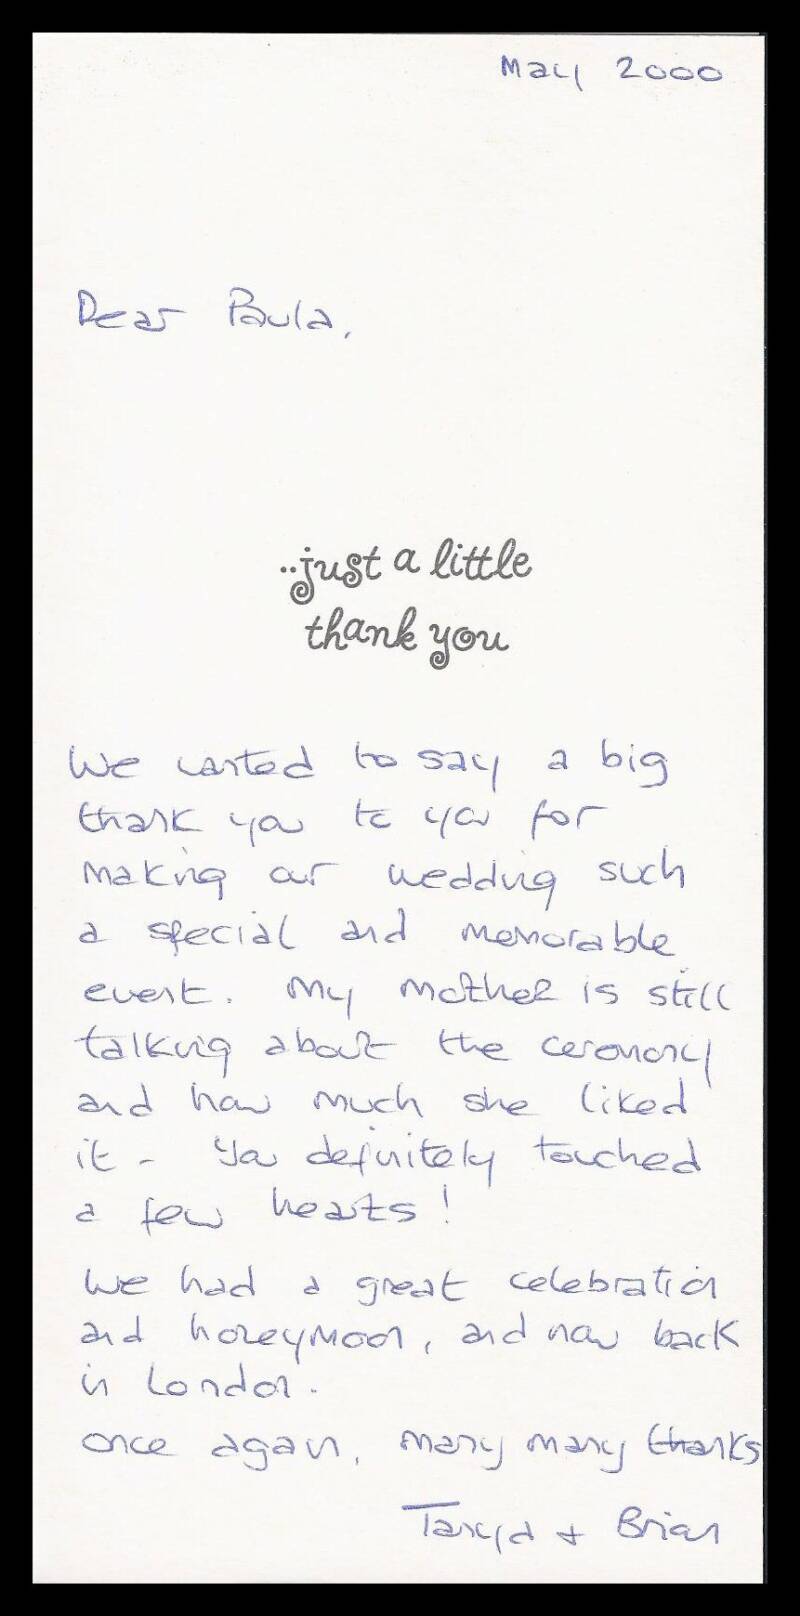 May 2000
Dear Paula,
..just a little
thank you
We wanted to say a big
thank you to you for
making our wedding such
a special and memorable
event. My mother is still
talking about the ceremony
and how much she liked
it - You definitely touched
a few hearts!
We had a great celebration
and honeymoon, and now back
in London.
Once again, many many thanks
Tanya + Brian